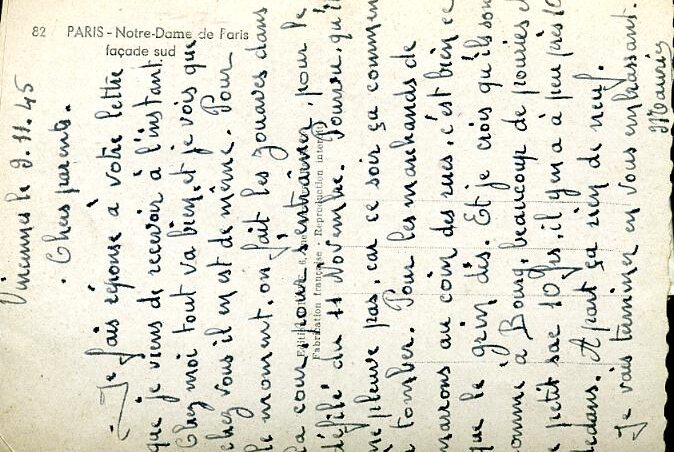 82 PARIS - Notre-Dame de Paris
façade sud
Vincennes le 9.11.45
Chers parents.
Je fais réponse à votre lettre
que je viens de recevoir à l'instant.
Chez moi tout va bien, et je vois que
chez vous il en est de même. Pour
le moment, on fait les zouaves dans
la cour, pour s'entrainer, pour le
défilé du 11 Novembre. Pourvu, qu'il
ne pleuve pas, car ce soir ça commen
a tomber. Pour les marchands de
marons au coin des rues, c'est bien ce
que le grin dis. Et je crois qu'ils son
comme a Bourg, beaucoup de pouries d
e petit sac 10 frs, il y en a à peu près 10
dedans. A part ça rien de neuf.
Je vais terminer en vous embrassant.
Maurice
Fabrication française - Reproduction interdite